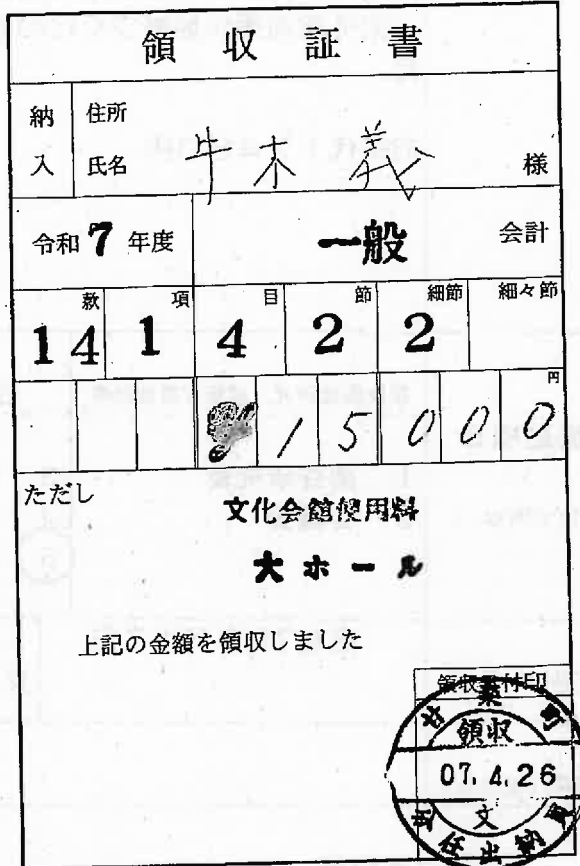 領収証書
納入
住所
氏名 牛木 義 様
令和 7 年度 一般 会計
款 項 目 節 細節 細々節
14 1 4 2 2
円
15000
ただし
文化会館使用料
大ホール
上記の金額を領収しました
領収 付印
甘楽町
領収
07.4.26
文
任出納員